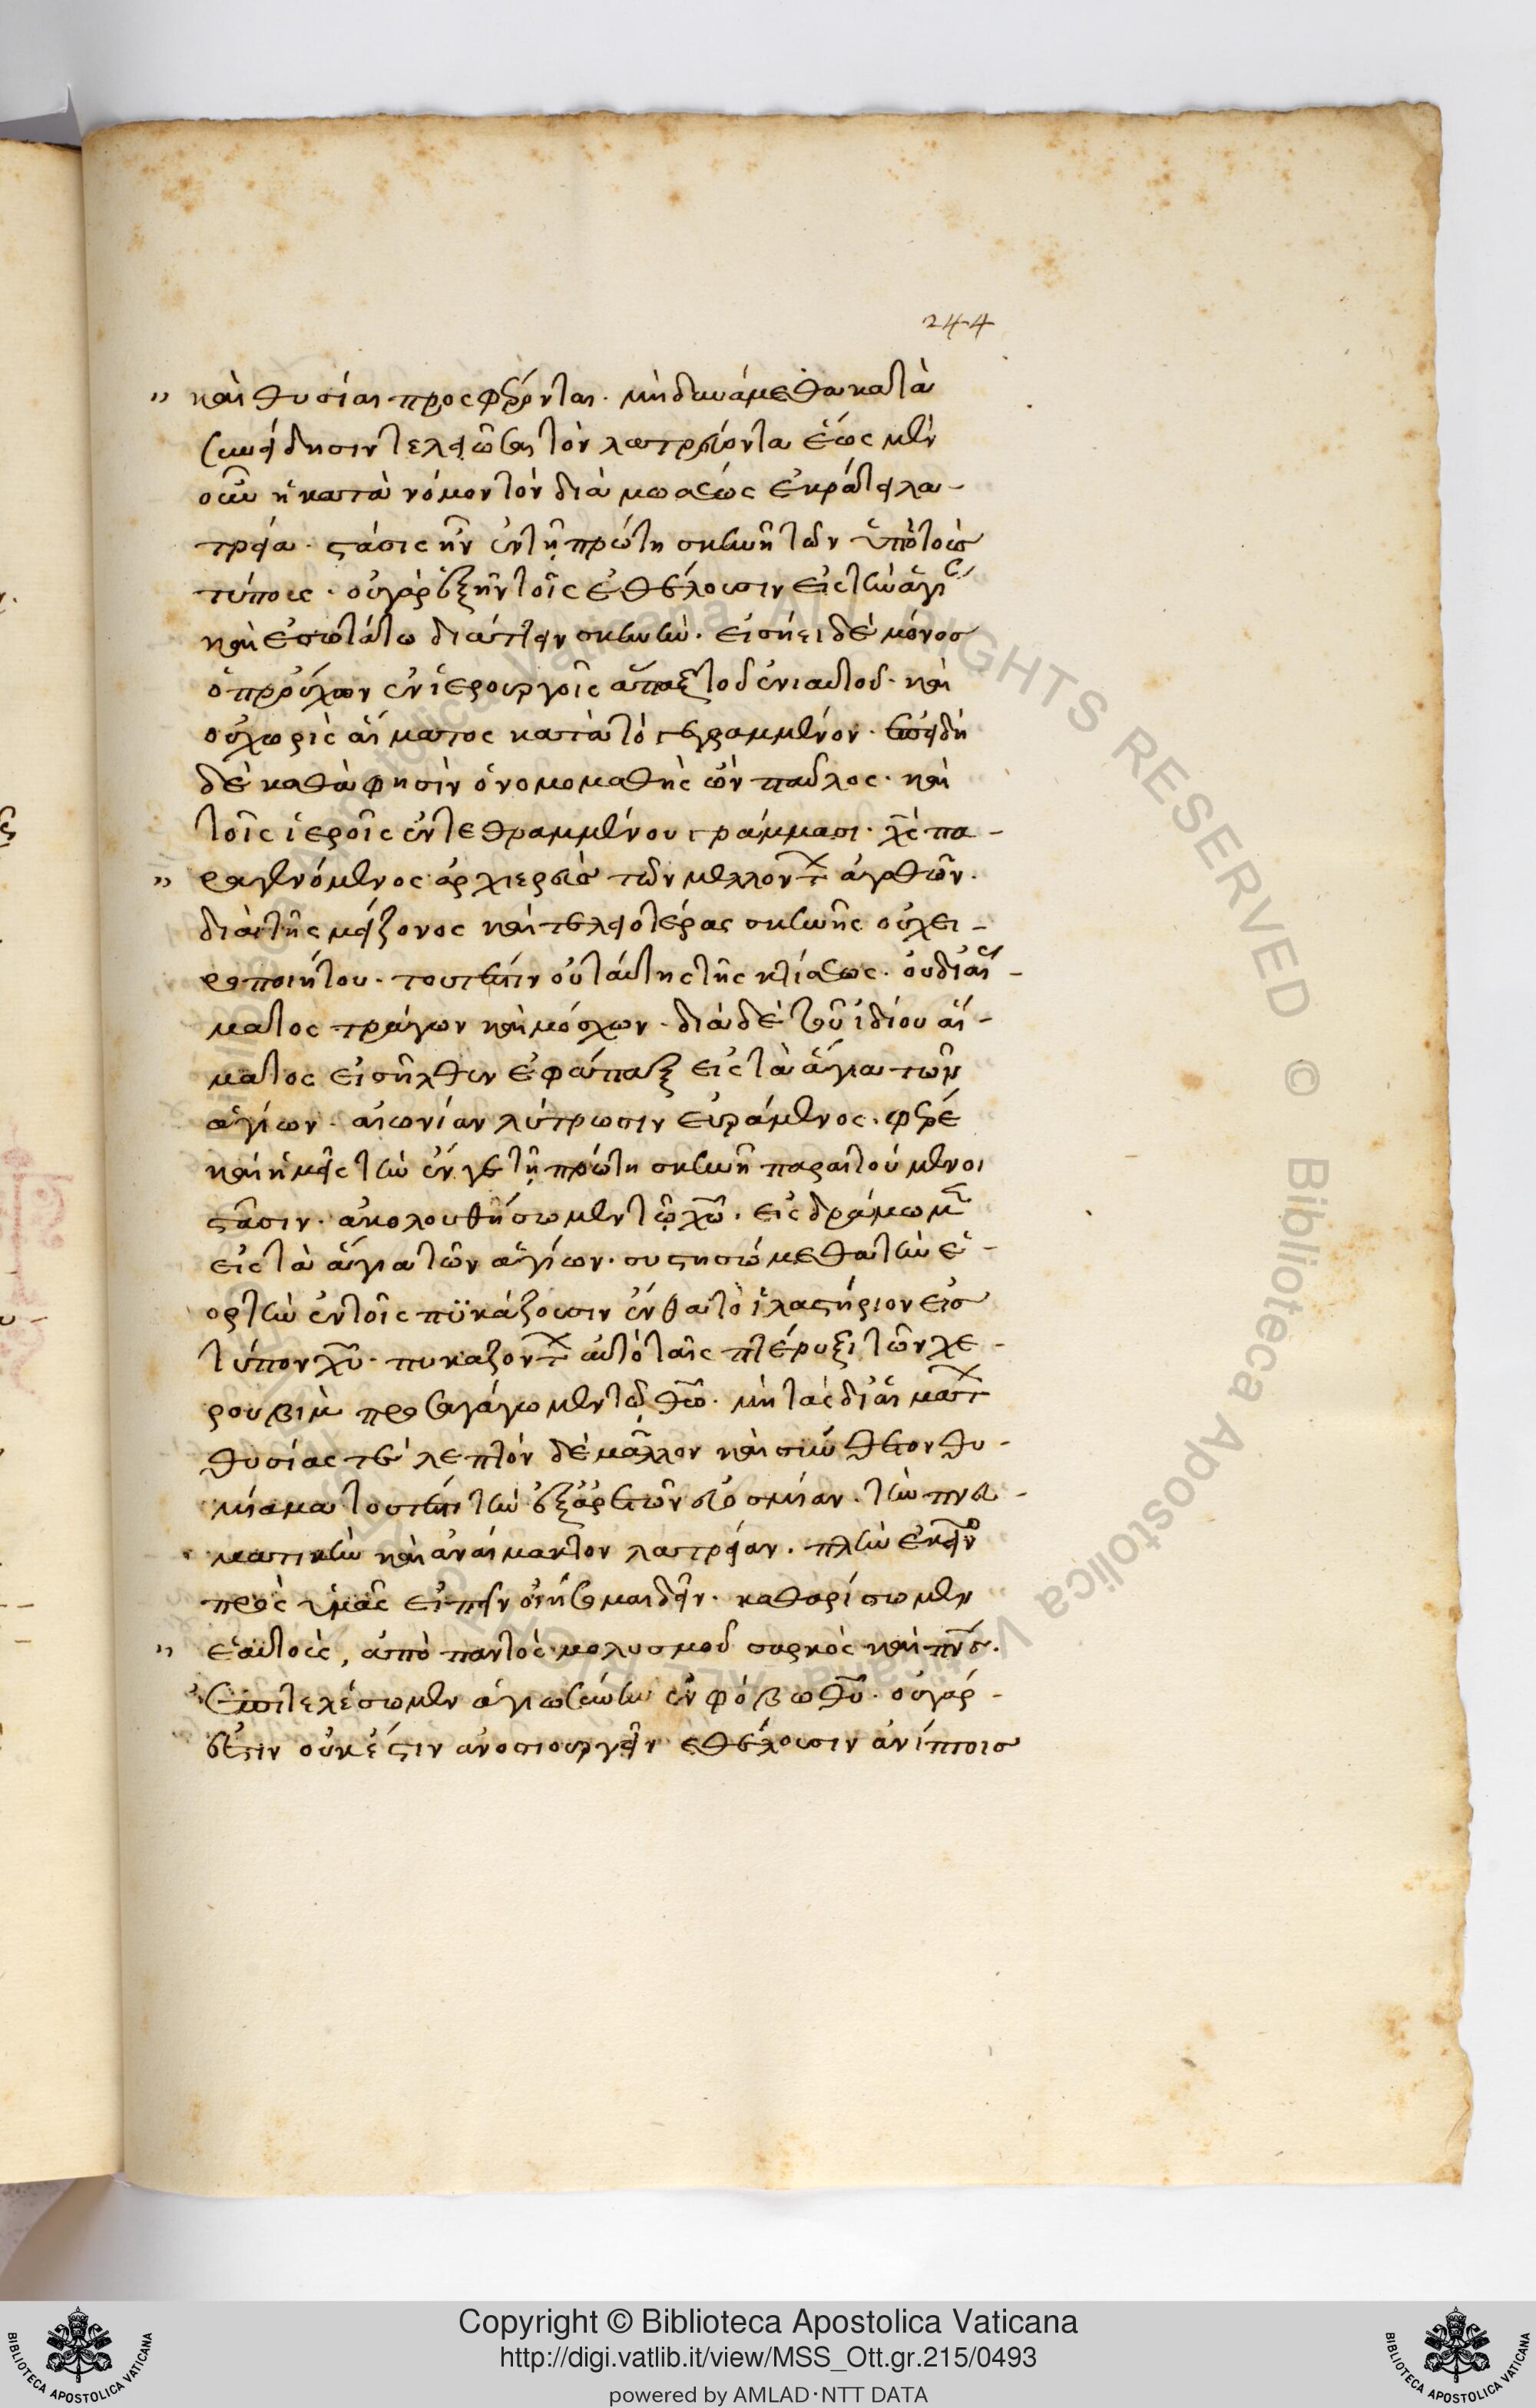 244
καὶ θυσίαι προσφέρονται. μὴ δυνάμεθα κατὰ
συνείδησιν τελειῶσαι τὸν λατρεύοντα ἕως μὲν
οὖν ἡ κατὰ νόμον τὸν διὰ μωσέως ἐκράτει λα-
τρεία. στάσις ἦν ἐν τῇ πρώτῃ σκηνῇ τῶν ὑπὸ τοὺς
τύπους. οὐ γὰρ ἐξῆν τοῖς ἐθέλουσιν εἰς τὴν ἁγί
καὶ ἐσωτάτω διάττειν σκηνήν. εἰσήει δὲ μόνος
ὁ προύχων ἐν ἱερουργοῖς ἅπαξ τοῦ ἐνιαυτοῦ. καὶ
οὐ χωρὶς αἵματος κατὰ τὸ γεγραμμένον. ἐπειδὴ
δὲ καθά φησιν ὁ νομομαθὴς ὢν παῦλος. καὶ
τοῖς ἱεροῖς ἐντεθραμμένου γράμμασι. χς πα-
ραγενόμενος ἀρχιερεὺς τῶν μελλόντ ἀγαθῶν.
διὰ τῆς μείζονος καὶ τελειοτέρας σκηνῆς οὐ χει-
ροποιήτου. τουτέστιν οὐ ταύτης τῆς κτίσεως. οὐ δι' αἵ-
ματος τράγων καὶ μόσχων. διὰ δὲ τοῦ ἰδίου αἵ-
ματος εἰσῆλθεν ἐφάπαξ εἰς τὰ ἅγια τῶν
ἁγίων. αἰωνίαν λύτρωσιν εὑράμενος. φέρε
καὶ ἡμεῖς τὴν ἐν γε τῇ πρώτῃ σκηνῇ παραιτούμενοι
στάσιν. ἀκολουθήσωμεν τῷ χῶ. εἰσδράμωμ
εἰς τὰ ἅγια τῶν ἁγίων. συστησώμεθα τὴν ἑ-
ορτὴν ἐν τοῖς πυκάζουσιν ἔνθα τὸ ἱλαστήριον εἰς
τύπον χῦ. πυκαζόντ αὐτὸ ταῖς πτέρυξι τῶν χε-
ρουβὶμ προσαγάγωμεν τῷ θῶ. μὴ τὰς δι' αἵματ
θυσίας τε λεπτὸν δὲ μᾶλλον καὶ σύνθετον θυ-
μίαμα τουτέστι τὴν ἐξ ἀρετῶν εὐοσμίαν. τὴν πνευ-
ματικὴν καὶ ἀναίμακτον λατρείαν. πλὴν ἐκεῖνο
πρὸς ὑμᾶς εἰπεῖν οἰήσομαι δεῖν. καθαρίσωμεν
ἑαυτούς, ἀπὸ παντὸς μολυσμοῦ σαρκὸς καὶ πνς.
ἐπιτελέσωμεν ἁγιωσύνην ἐν φόβω θῦ. οὐ γάρ-
ἔστιν οὐκ ἔστιν ἀνοσιουργεῖν ἐθέλουσιν ἀνίπτοις